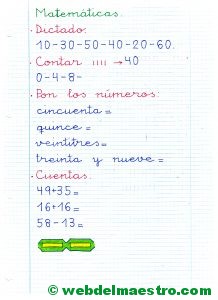 Matemáticas.
· Dictado:
10-30-50-40-20-60.
· Contar ıııı → 40
0-4-8-
· Pon los números:
cincuenta =
quince =
veintitres =
treinta y nueve =
· Cuentas.
49+35=
16+16=
58-13=
© webdelmaestro.com